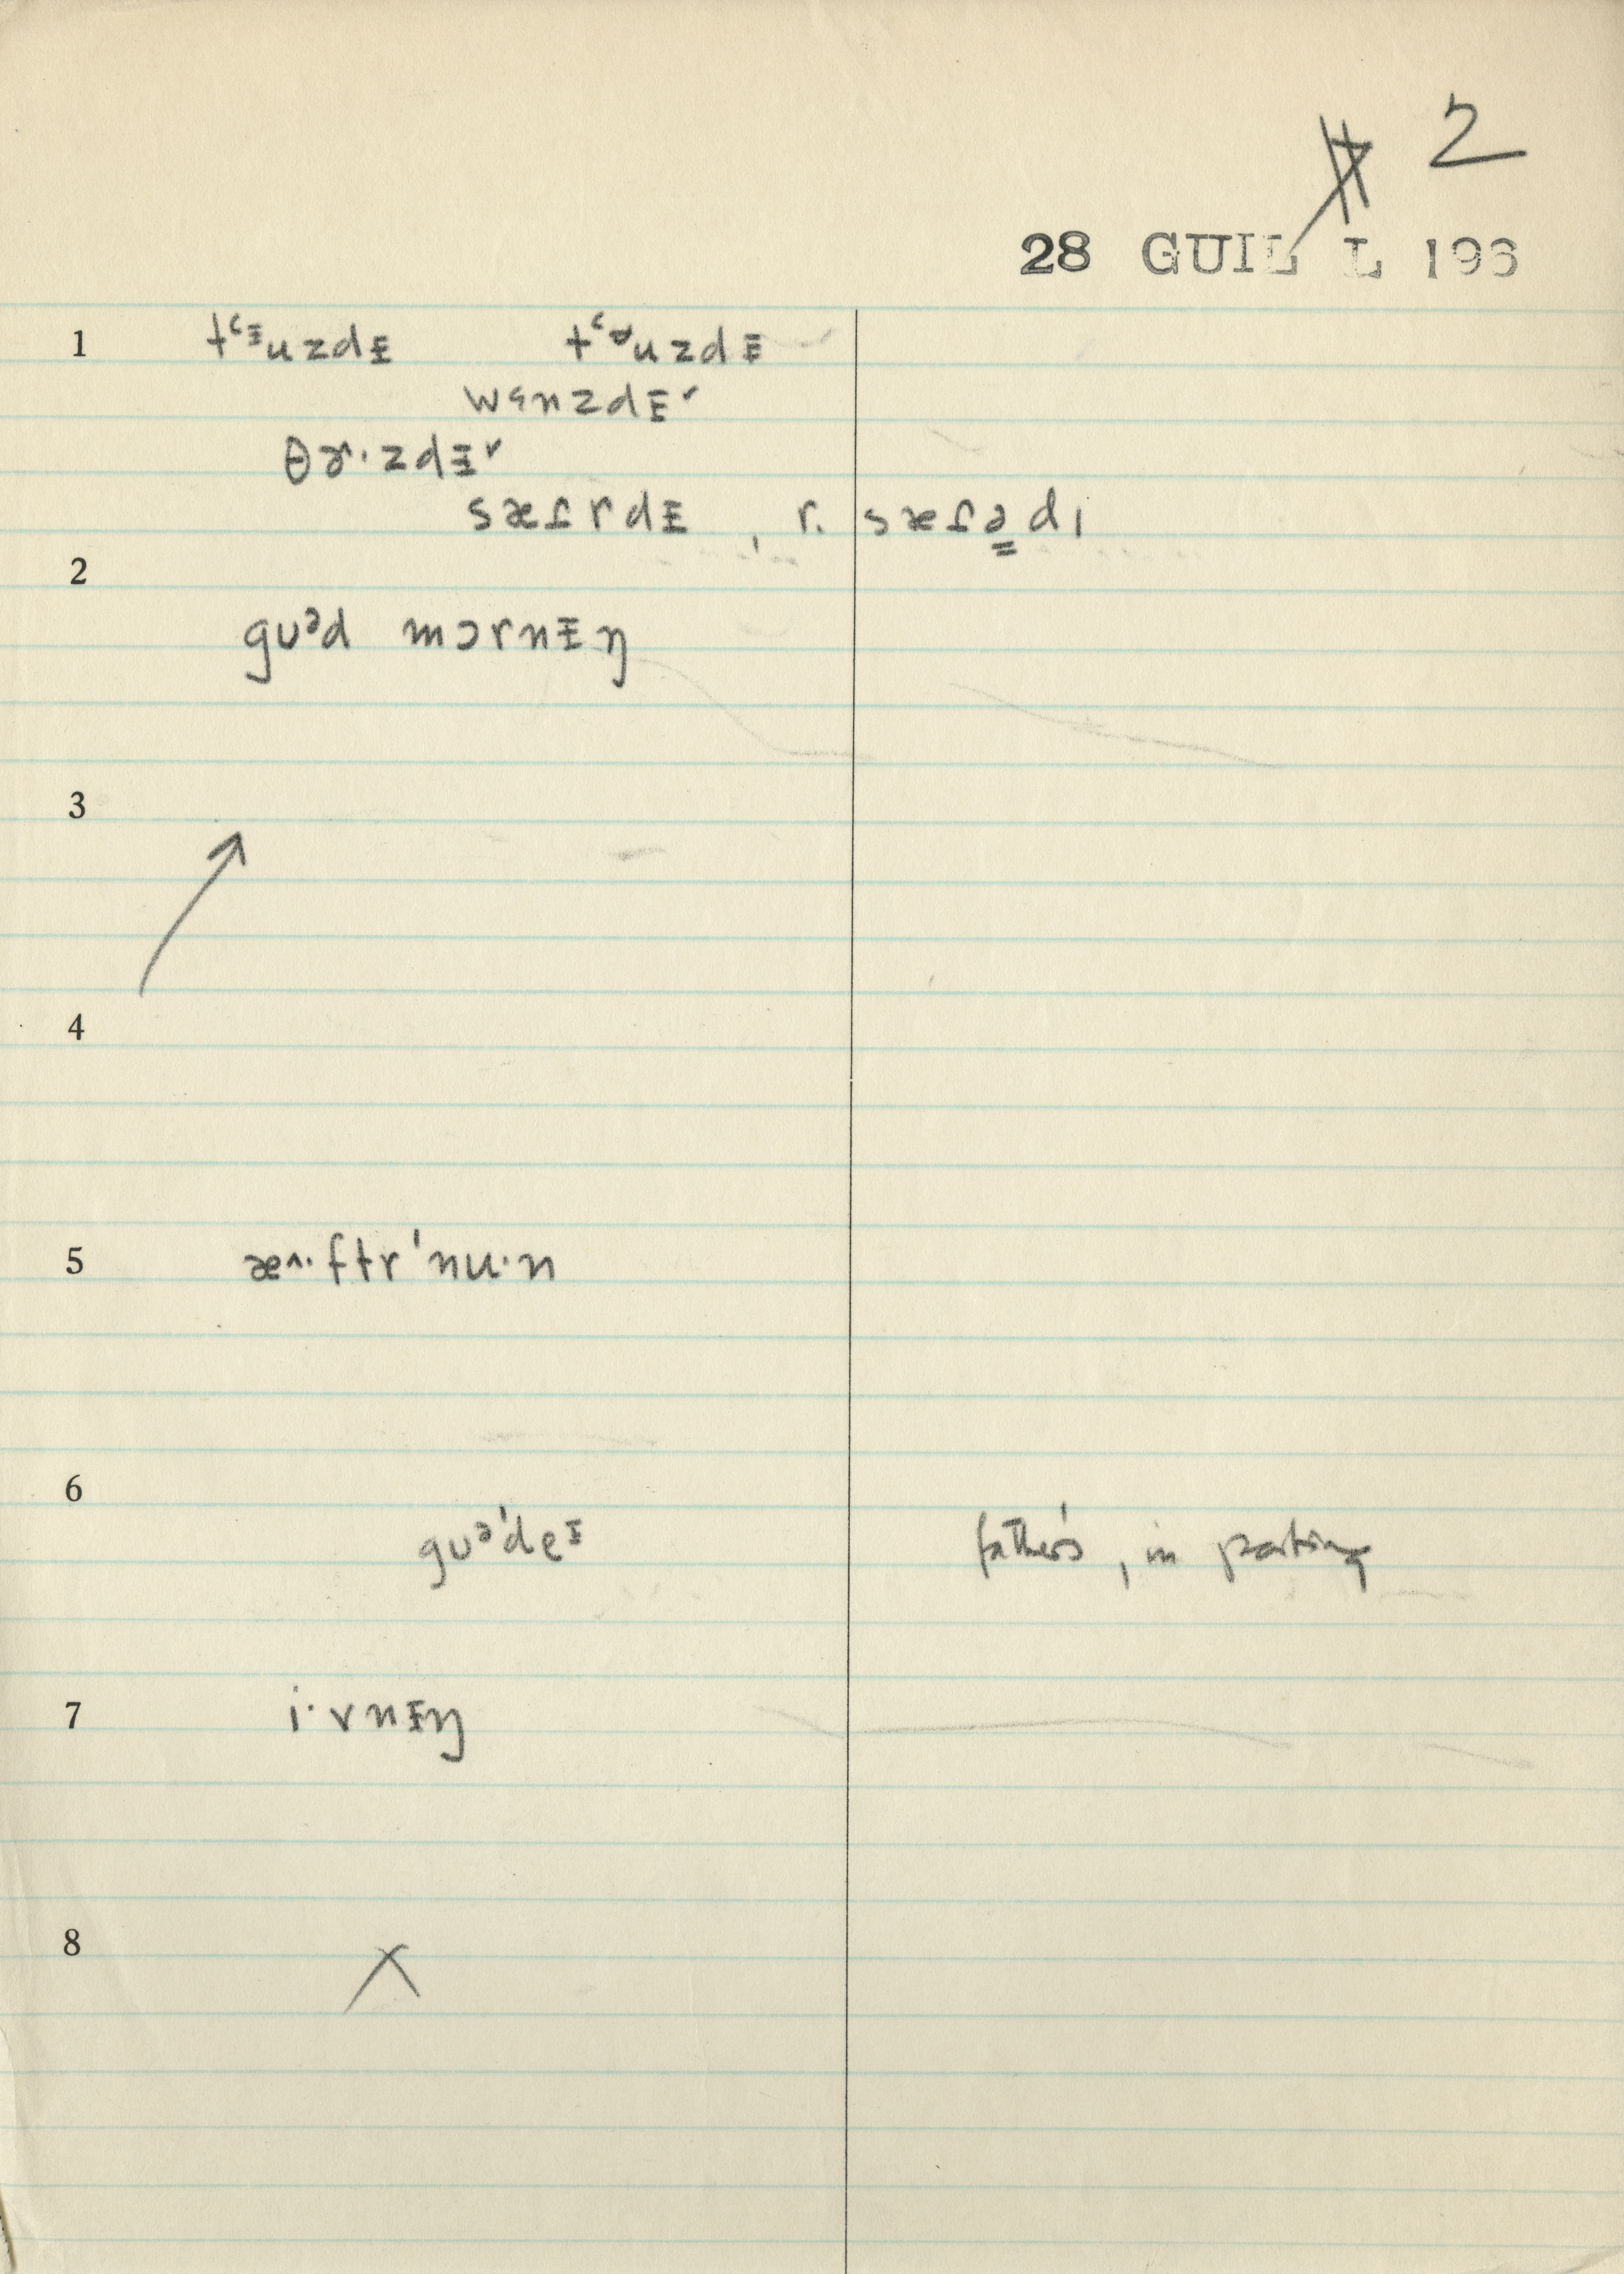 # 2
28 GUIL L 193
1 tʻᵻuzdᵻ tʻᶹuzdᵻ
wɜnzdᵻ˅
θɚ·zdᵻ˅
sæɾrdᵻ , r. sæɾədɪ
2
gʊᵊd mɔrnᵻŋ
3
4
5 æ^·ftr'nu·n
6
gʊᵊ'deᵻ father's, in parting
7 i·vnᵻŋ
8